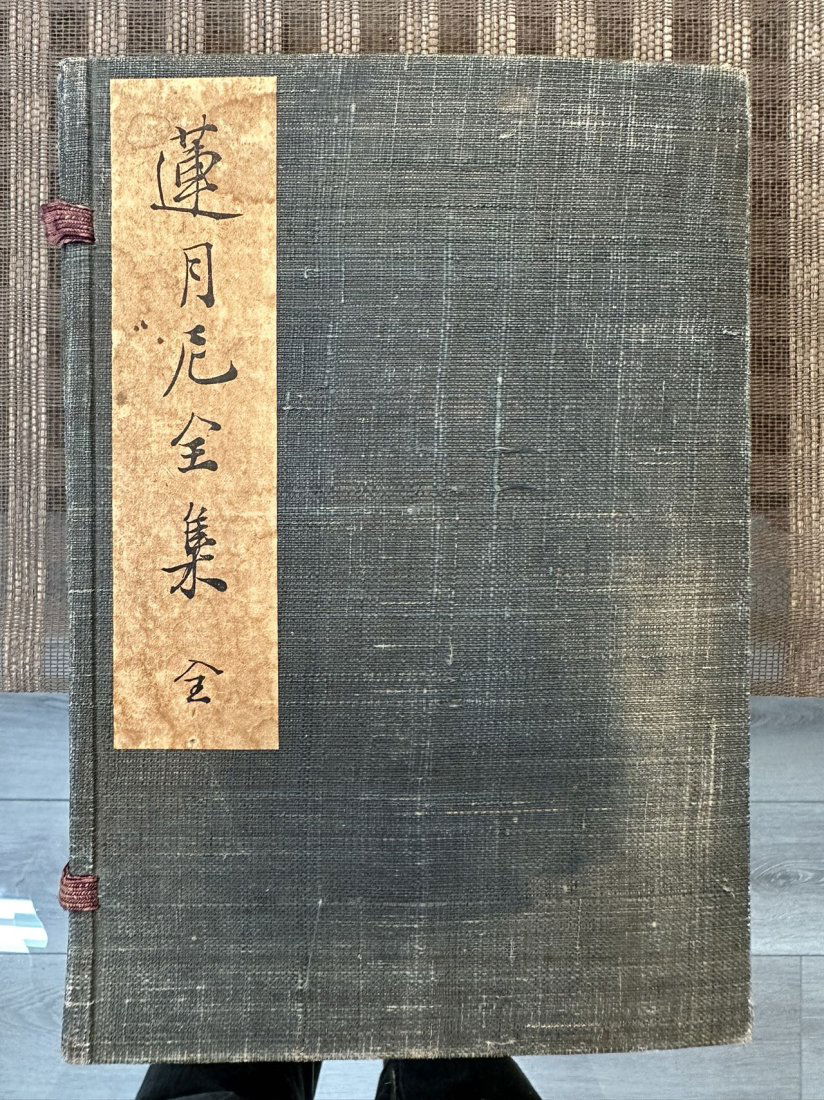 蓮月尼全集 全